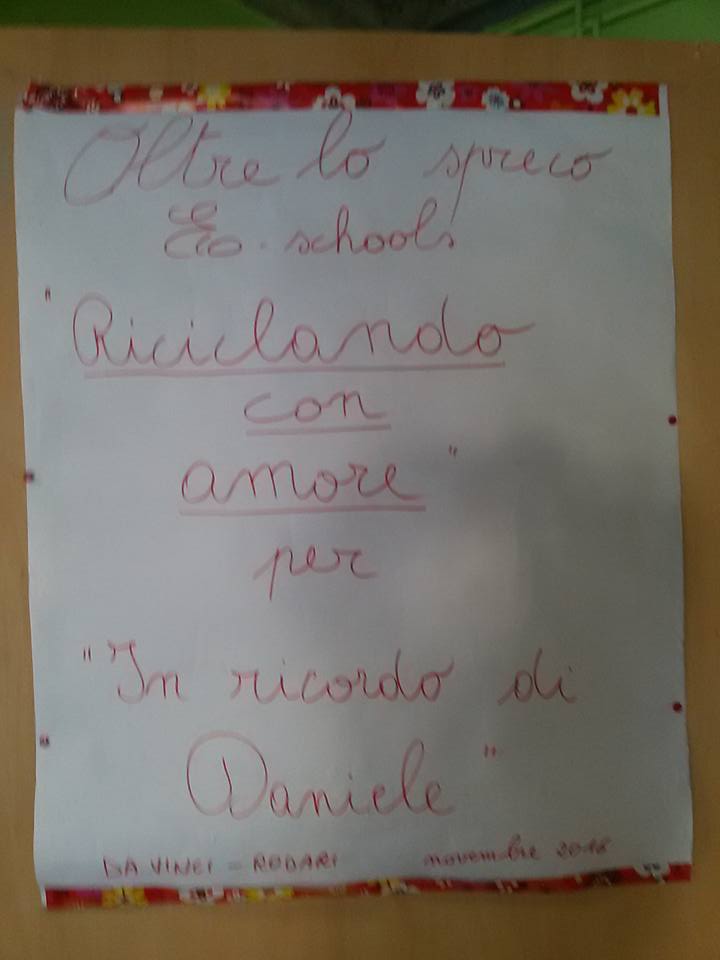 Oltre lo spreco
Eco-schools
"Riciclando
con
amore"
per
"In ricordo di
Daniele"
DA VINCI - RODARI novembre 2016